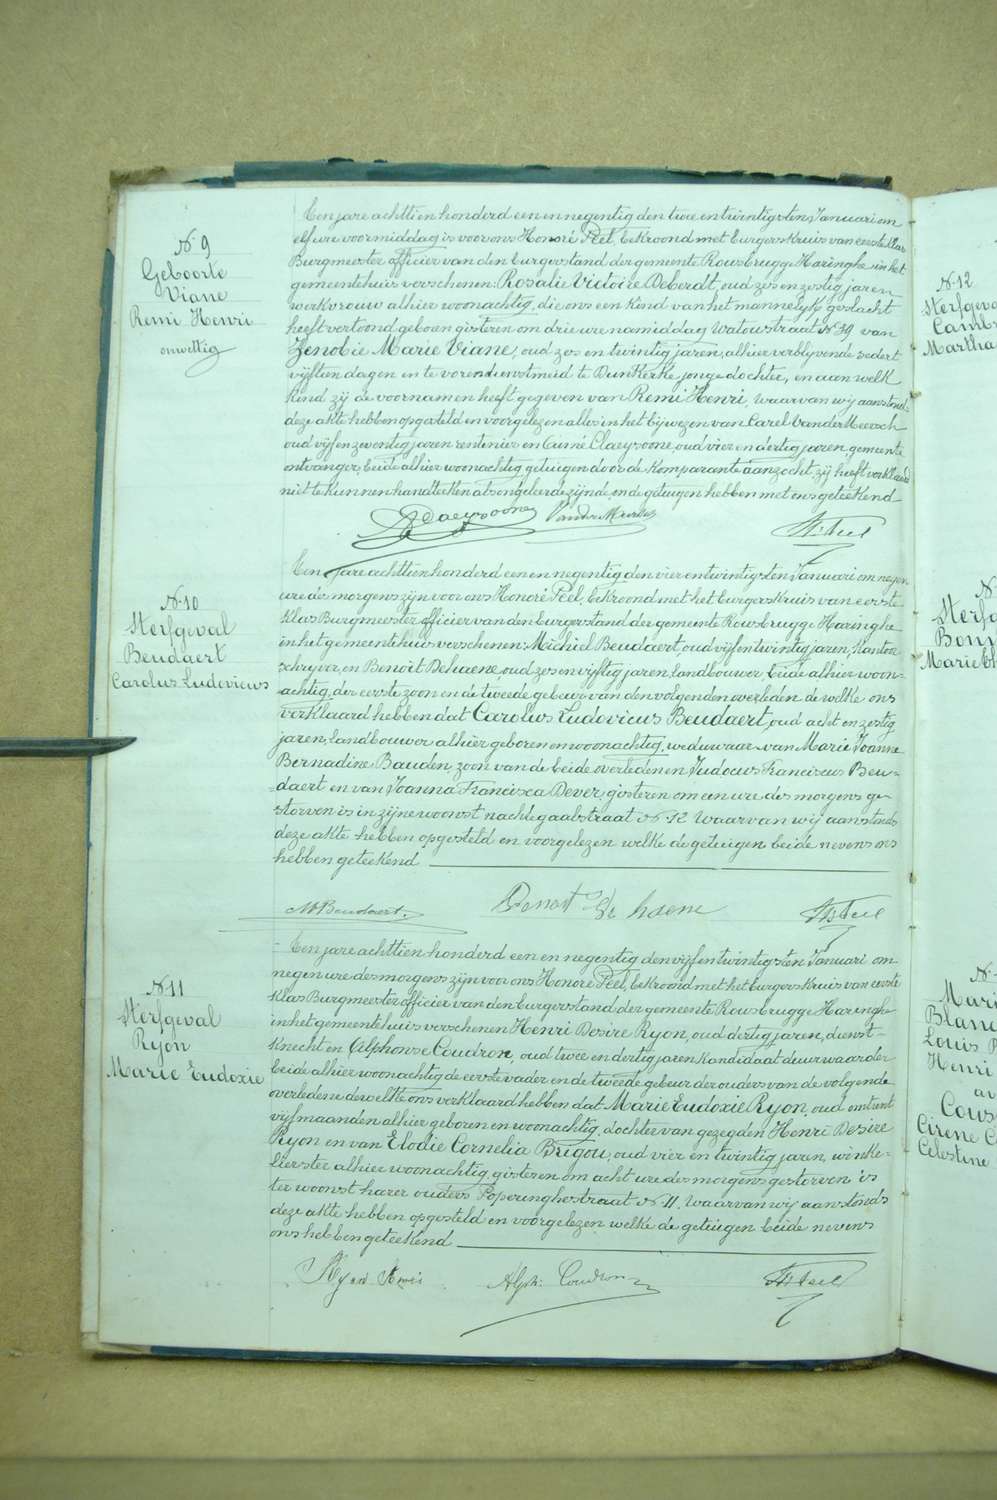 N 9
Geboorte
Viane
Remi Henri
onwettig
Een jare achttien honderd een en negentig den twee en twintigsten Januari om
elf ure voormiddag is voor ons Honoré Peel, bekroond met burgerskruis van eerste klas
Burgmeester officier van den burgerstand der gemeente Rousbrugge Haringhe in het
gemeentehuis verschenen: Rosalie Victoire Deberdt, oud zes en zestig jaren
werkvrouw alhier woonachtig, die ons een kind van het mannelyk geslacht
heeft vertoond geboen gisteren om drie ure namiddag Watoustraat N 39 van
Zenobie Marie Viane, oud zes en twintig jaren, alhier verblyvende sedert
vijftien dagen en te voren dienstmeid te Dunkerke jonge dochter, en aan welk
kind zij de voornamen heeft gegeven van Remi Henri, Waarvan wij aanstond-
deze akte hebben opgesteld en voorgelezen alles in het bijwezen van Carel Vander Meersch
oud vijf en zeventig jaren rentenier en Cuiné Claeysoone, oud vier en dertig jaren, gemeente
ontvanger, beide alhier woonachtig getuigen door de komparante aanzocht, zij heeft verklaard
niet te kunnen handteeken als ongeleerd zijnde, en de getuigen hebben met ons geteekend
Claeysoone Vander Meersch H. Peel
N 10
Sterfgeval
Beudaert
Carolus Ludovicus
Een jare achttien honderd een en negentig den vier en twintigsten Januari om negen
ure des morgens zijn voor ons Honoré Peel, bekroond met het burgerskruis van eerste
klas Burgmeester officier van den burgerstand der gemeente Rousbrugge Haringhe
in het gemeentehuis verschenen: Michiel Beudaert, oud vijf en twintig jaren, kantoor
schrijver, en Benoit Dehaene, oud zes en vijftig jaren, landbouwer, beide alhier woon-
achtig, de eerste zoon en de tweede gebuer van den volgenden overleden de welke ons
verklaard hebben dat Carolus Ludovicus Beudaert, oud acht en zestig
jaren, landbouwer alhier geboren en woonachtig, weduwaar van Marie Joanne
Bernadine Bauden, zoon van de beide overledenen Judocus Franciscus Beu-
daert en van Joanna Francisca Dever, gisteren om een ure des morgens ge-
storven is in zijne woonst nachtegaalstraat N 12 Waarvan wij aanstonds
deze akte hebben opgesteld en voorgelezen welke de getuigen beide nevens ons
hebben geteekend
M Beudaert. Benoit De haene H. Peel
N 11
Sterfgeval
Ryon
Marie Eudoxie
Een jare achttien honderd een en negentig den vijf en twintigsten Januari om
negen ure des morgens zijn voor ons Honoré Peel, bekroond met het burgerskruis van eerste
klas Burgmeester officier van den burgerstand der gemeente Rousbrugge Haringhe
in het gemeentehuis verschenen Henri Desire Ryon, oud dertig jaren, dienst-
knecht en Alphonse Coudron, oud twee en dertig jaren kandidaat deurwaarder
beide alhier woonachtig de eerste vader en de tweede gebuer der ouders van de volgende
overledene dewelke ons verklaard hebben dat Marie Eudoxie Ryon, oud omtrent
vijf maanden alhier geboren en woonachtig, dochter van gezegden Henri Desire
Ryon en van Elodie Cornelia Brigou, oud vier en twintig jaren, winke-
lierster alhier woonachtig, gisteren om acht ure des morgens gestorven is
ter woonst harer ouders Poperinghestraat N 11. Waarvan wij aanstonds
deze akte hebben opgesteld en voorgelezen welke de getuigen beide nevens
ons hebben geteekend
Ryon Alph: Coudron H. Peel
N 12
Sterfgeval
Camb
Martha
N
Sterfg
Bonn
Marie
N
Mari
Blanc
Louis
Henri
Cous
Cirene C
Celestine